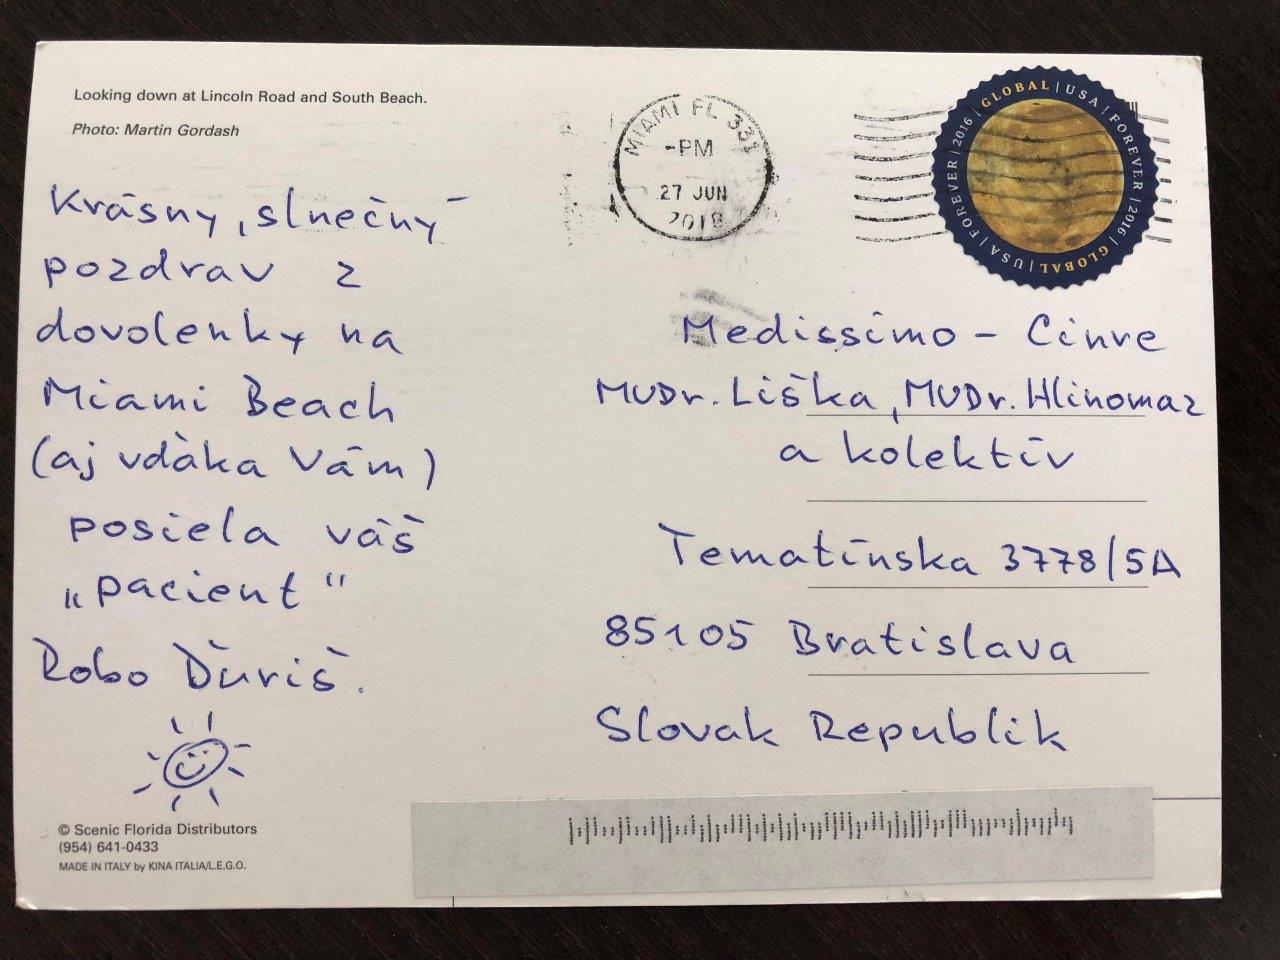 Looking down at Lincoln Road and South Beach.
Photo: Martin Gordash
MIAMI FL 331
-PM
27 JUN
2018
GLOBAL | USA | FOREVER | 2016 | GLOBAL | USA | FOREVER | 2016
Krásny, slnečný
pozdrav z
dovolenky na
Miami Beach
(aj vďaka Vám)
posiela váš
„pacient“
Robo Ďuriš.
Medissimo - Cinre
MUDr. Liška, MUDr. Hlinomaz
a kolektív
Tematínska 3778/5A
85105 Bratislava
Slovak Republik
© Scenic Florida Distributors
(954) 641-0433
MADE IN ITALY by KINA ITALIA/L.E.G.O.